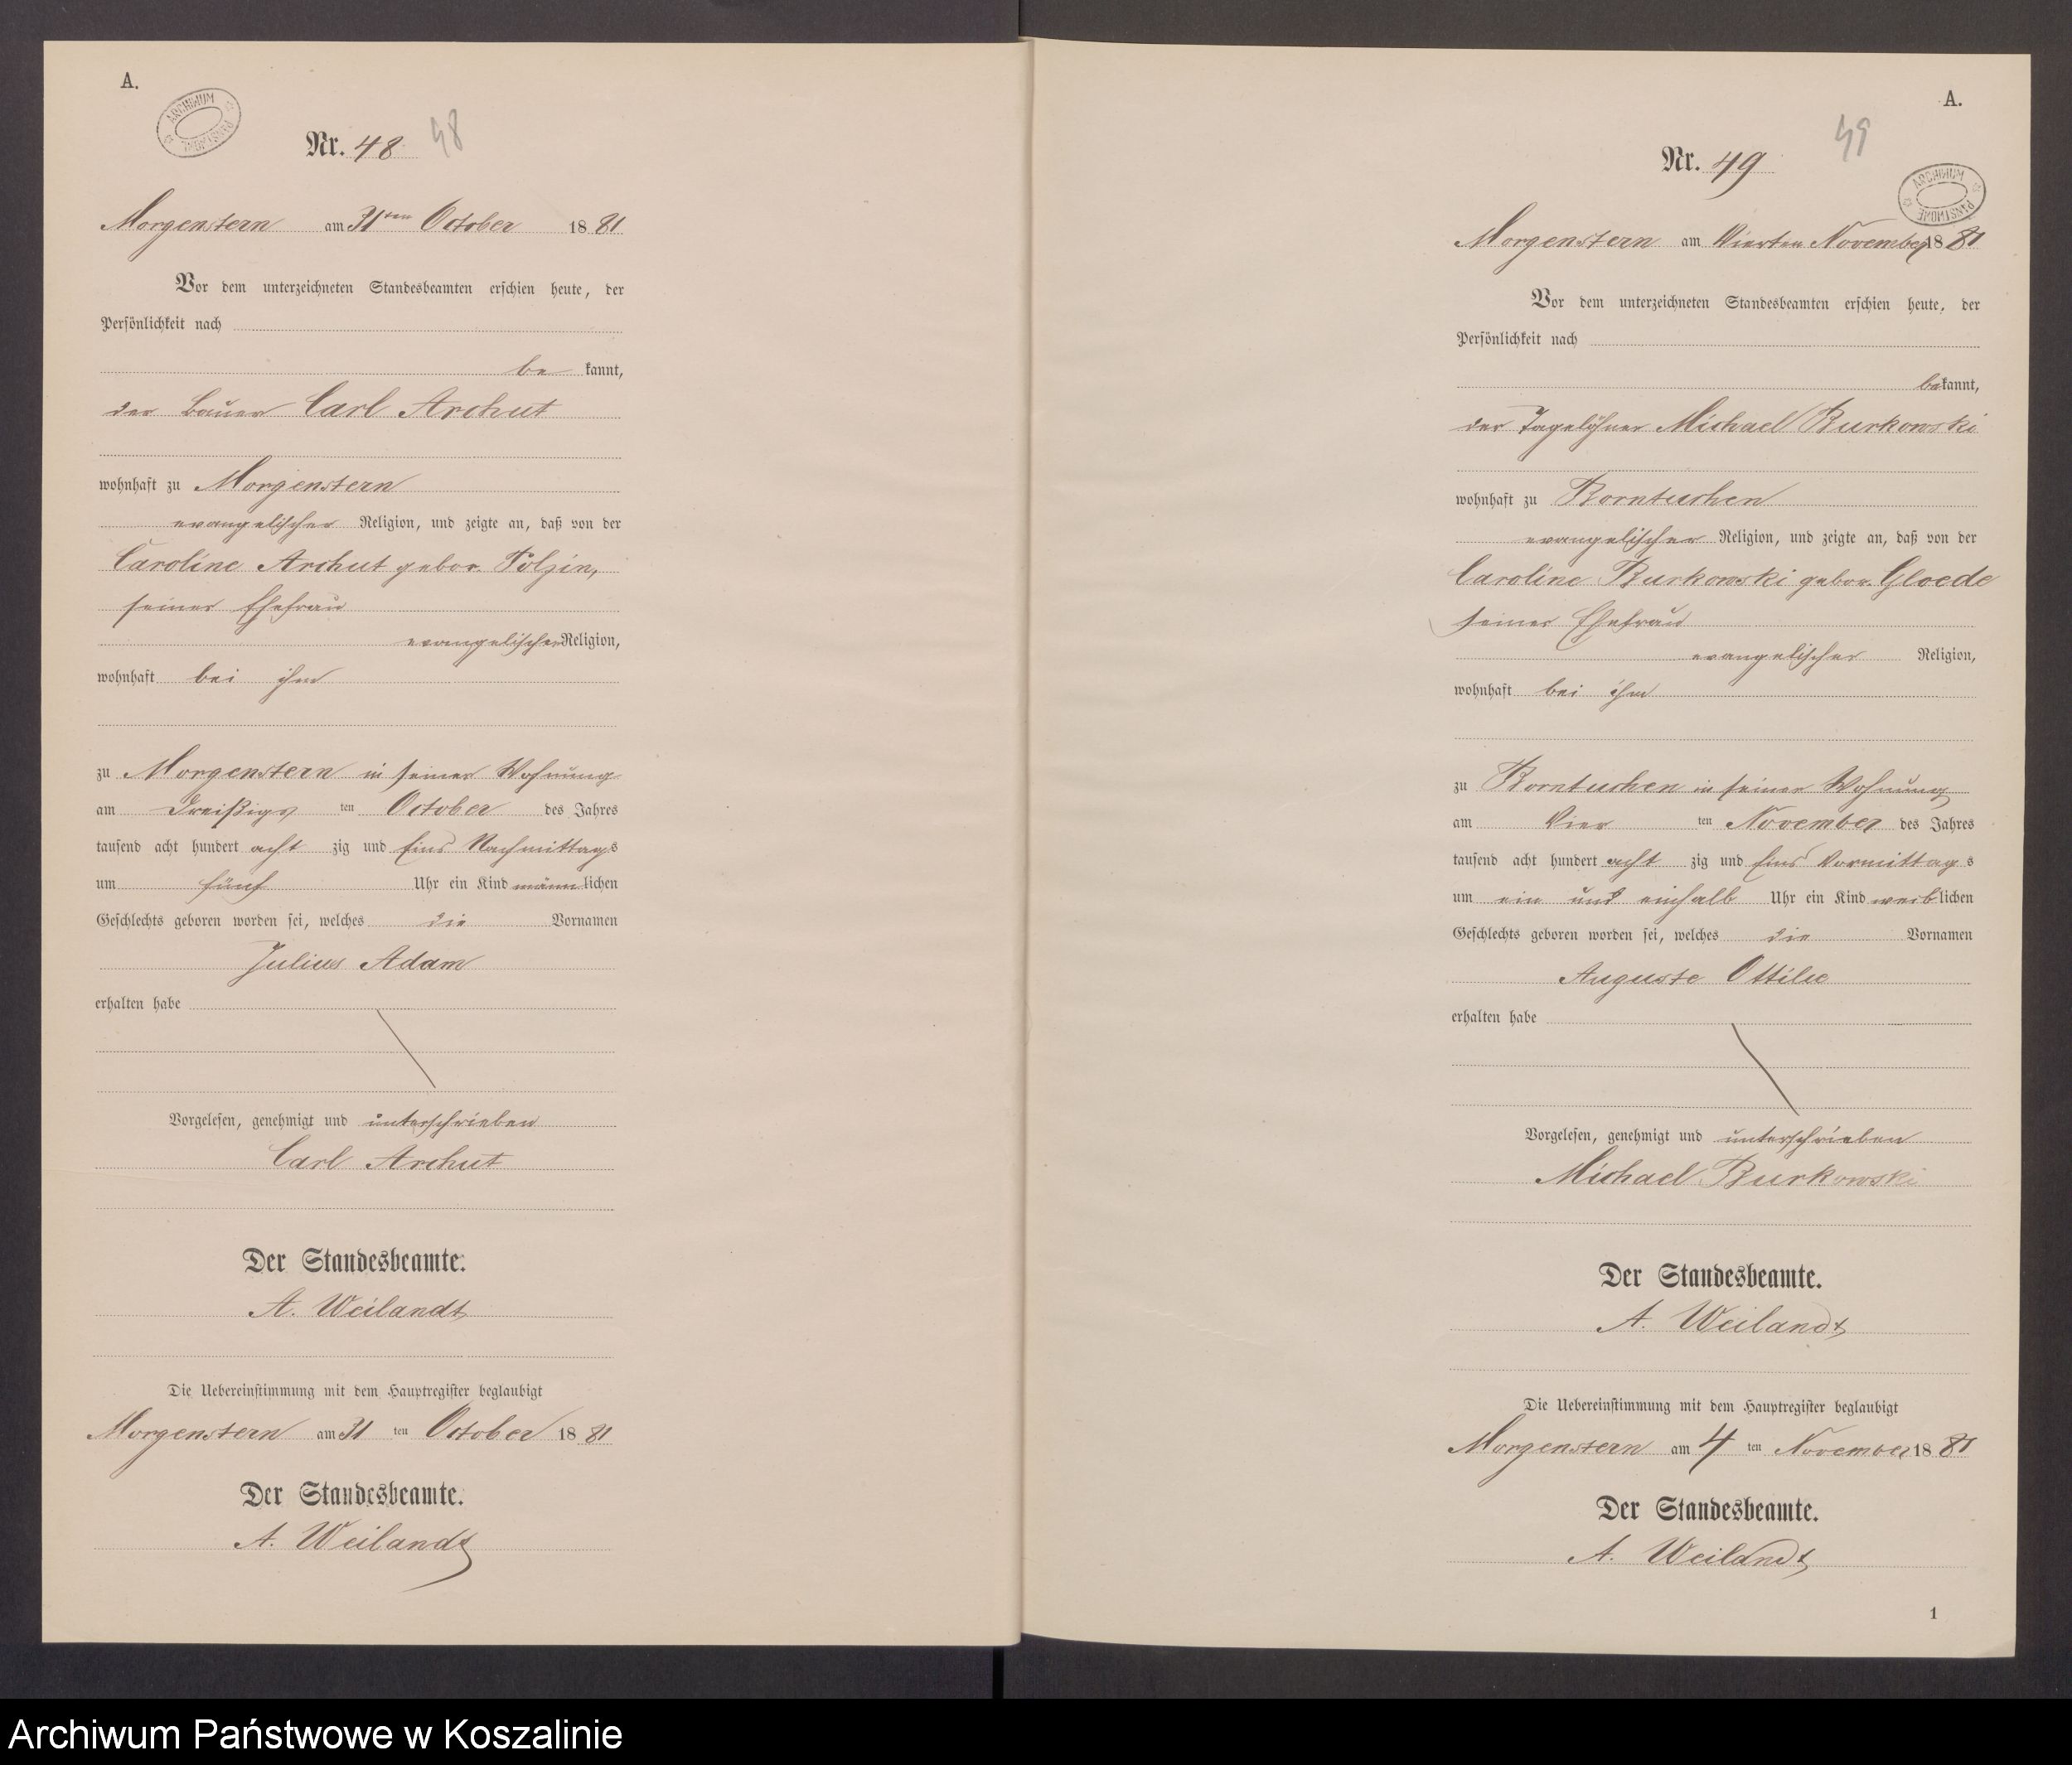 A.
ARCHIWUM PAŃSTWOWE
Nr. 48 48
Morgenstern am 31ten October 1881
Vor dem unterzeichneten Standesbeamten erschien heute, der
Persönlichkeit nach
be kannt,
der Bauer Carl Archut
wohnhaft zu Morgenstern
evangelischer Religion, und zeigte an, daß von der
Caroline Archut gebor. Polzin,
seiner Ehefrau
evangelischer Religion,
wohnhaft bei ihm
zu Morgenstern in seiner Wohnung
am Dreißigs ten October des Jahres
tausend acht hundert acht zig und Eins Nachmittags
um fünf Uhr ein Kind männlichen
Geschlechts geboren worden sei, welches die Vornamen
Julius Adam
erhalten habe
Vorgelesen, genehmigt und unterschrieben
Carl Archut
Der Standesbeamte.
A. Weilandt
Die Uebereinstimmung mit dem Hauptregister beglaubigt
Morgenstern am 31 ten October 1881
Der Standesbeamte.
A. Weilandt
A.
49
Nr. 49
ARCHIWUM PAŃSTWOWE
Morgenstern am Vierten November 1881
Vor dem unterzeichneten Standesbeamten erschien heute, der
Persönlichkeit nach
bekannt,
der Tagelöhner Michael Burkowski
wohnhaft zu Borntuchen
evangelischer Religion, und zeigte an, daß von der
Caroline Burkowski gebor. Gloede
seiner Ehefrau
evangelischer Religion,
wohnhaft bei ihm
zu Borntuchen in seiner Wohnung
am Vier ten November des Jahres
tausend acht hundert acht zig und Eins Vormittags
um ein und einhalb Uhr ein Kind weiblichen
Geschlechts geboren worden sei, welches die Vornamen
Auguste Ottilie
erhalten habe
Vorgelesen, genehmigt und unterschrieben
Michael Burkowski
Der Standesbeamte.
A. Weilandt
Die Uebereinstimmung mit dem Hauptregister beglaubigt
Morgenstern am 4 ten November 1881
Der Standesbeamte.
A. Weilandt
1
Archiwum Państwowe w Koszalinie